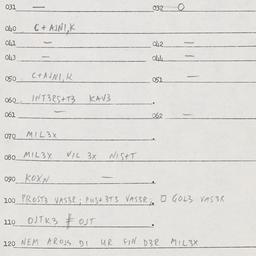 031 — 032 O
040 C + AJNI, K
041 = 042 =
043 = 044 =
050 C+AJNI, K 051 —
060 INT3RS+T3 KAV3
061 — 062 —
070 MIL3X
080 MIL3X VIL 3X NIS+T
090 KOXN —
100 PROST3 VAS3R; VAS3R; □ GOL3 VAS3R
110 OJTK3 ≠ OJT
120 NEM AROJS DI UR FIN D3R MIL3X